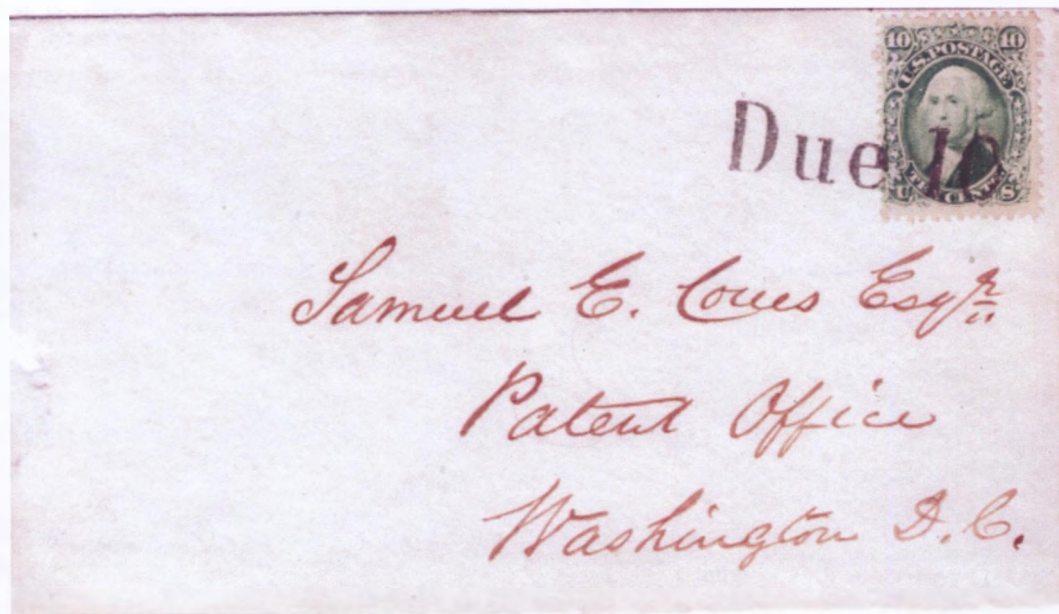 10 10
U.S. POSTAGE
Due 10
TEN CENTS
U S
Samuel E. Coues Esqr.
Patent Office
Washington D.C.